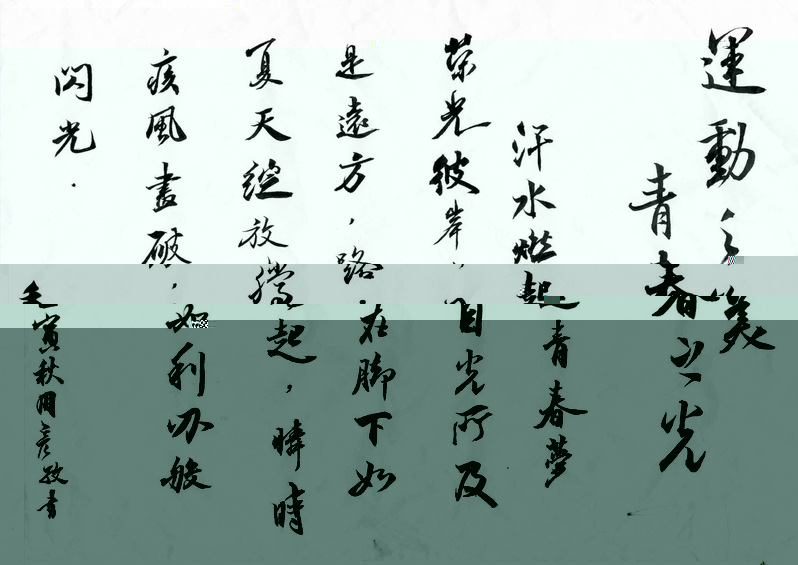 運動之美
青春之光
汗水燃起青春夢
榮光彼岸，目光所及
是遠方，路在腳下如
夏天綻放騰起，瞬時
疾風盡破，如利刃般
閃光.
壬寅秋周彥孜書